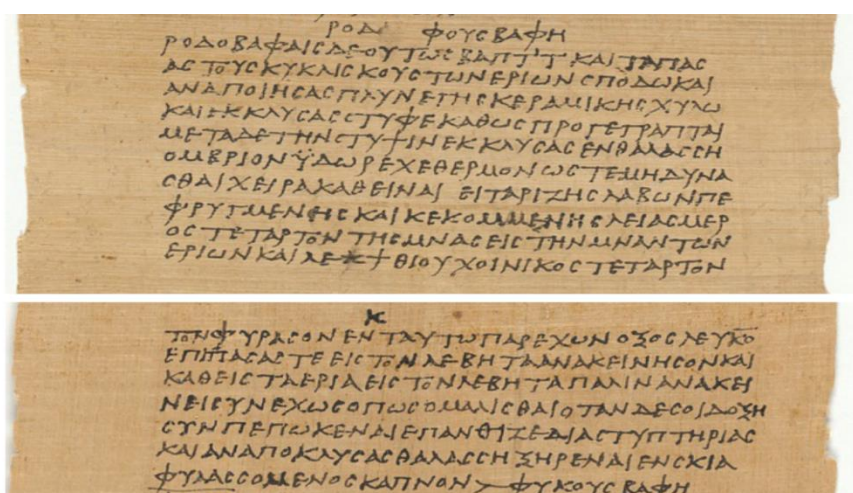 ΡΟΔ ΦΟΥϹΒΑΦΗ
ΡΟΔΟΒΑΦΑΙϹΔΕΟΥΤΩϹ ΒΑΠΤ ΚΑΙ
ΑϹ ΤΟΥϹΚΥΚΛΙϹΚΟΥϹΤΩΝΕΡΙΩΝϹΠΟΔΩΚΑΙ
ΑΝΑΠΟΙΗϹΑϹΠΛΥΝΕΓΗϹΚΕΡΑΜΙΚΗϹΧΥΛΩ
ΚΑΙΕΚΚΛΥϹΑϹϹΤΥΦΕΚΑΘΩϹΠΡΟΓΕΓΡΑΠΤΑΙ
ΜΕΤΑΔΕΤΗΝϹΤΥΨΙΝΕΚΚΛΥϹΑϹΕΝΘΑΛΑϹϹΗ
ΟΜΒΡΙΟΝΫΔΩΡΕΧΕΘΕΡΜΟΝΩϹΤΕΜΗΔΥΝΑ
ϹΘΑΙΧΕΙΡΑΚΑΘΕΙΝΑΙ ΕΙΤΑΡΙΖΗϹΛΑΒΩΝΠΕ
ΦΡΥΓΜΕΝΗϹΚΑΙΚΕΚΟΜΜΕΝΗϹΛΕΙΑϹΜΕΡ
ΟϹΤΕΤΑΡΤΟΝΤΗϹΜΝΑϹΕΙϹΤΗΝΜΝΑΝΤΩΝ
ΕΡΙΩΝΚΑΙ ΟΥΧΟΙΝΙΚΟϹΤΕΤΑΡΤΟΝ
Κ
ΤΟΝΦΥΡΑϹΟΝΕΝΤΑΥΤΩΠΑΡΕΧΩΝΟΞΟϹΛΕΥΚΟ
ΕΠΙΠΑϹΑϹΤΕΕΙϹΤΟΝΛΕΒΗΤΑΑΝΑΚΕΙΝΗϹΟΝΚΑΙ
ΚΑΘΕΙϹΤΑΕΡΙΑΕΙϹΤΟΝΛΕΒΗΤΑΠΑΛΙΝΑΝΑΚΕΙ
ΝΕΙϹΥΝΕΧΩϹΟΠΩϹΟΜΑΛΙϹΘΑΙΟΤΑΝΔΕϹΟΙΔΟΞΗ
ϹΥΝΠΕΠΩΚΕΝΑΙΕΠΑΝΘΙΖΕΔΙΑϹΤΥΠΤΗΡΙΑϹ
ΚΑΙΑΝΑΠΟΚΛΥϹΑϹΘΑΛΑϹϹΗΞΗΡΕΝΑΙΕΝϹΚΙΑ
ΦΥΛΑϹϹΟΜΕΝΟϹΚΑΠΝΟΝ ΦΥΚΟΥϹΒΑΦΗ